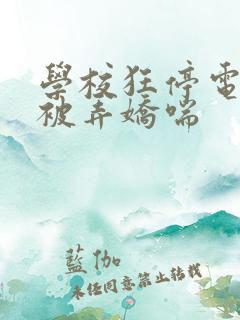 學校狂停電
被弄嬌喘
藍伽
未經同意禁止轉載